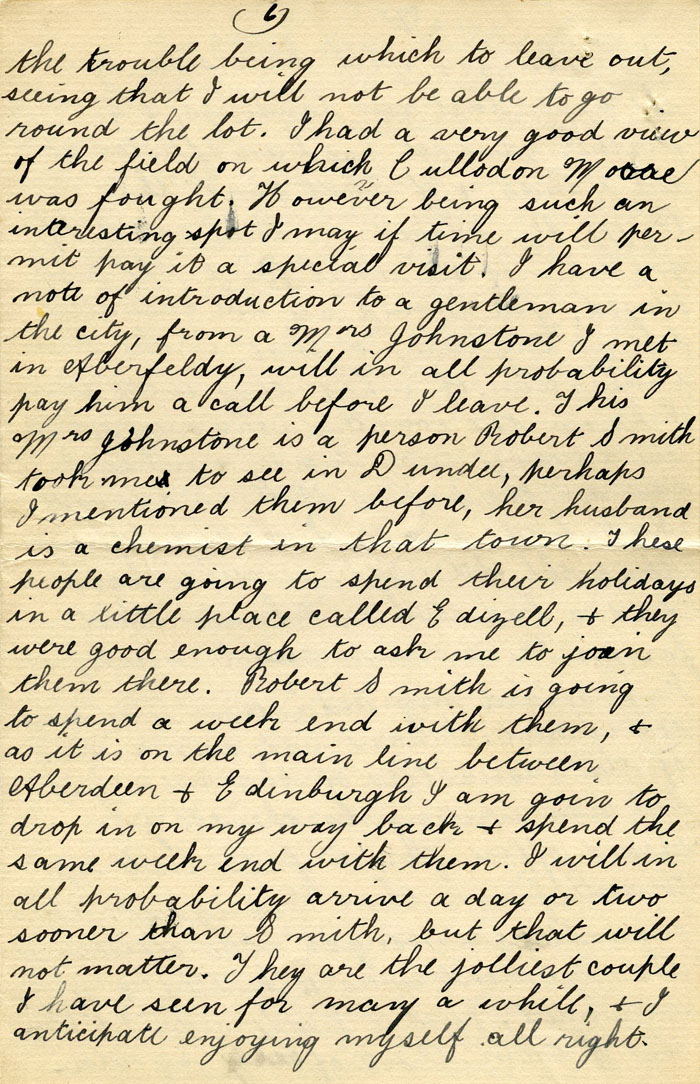 (6)
the trouble being which to leave out,
seeing that I will not be able to go
round the lot. I had a very good view
of the field on which Cullodon
was fought. However being such an
interesting spot I may if time will per-
mit pay it a special visit. I have a
note of introduction to a gentleman in
the city, from a Mrs Johnstone I met
in Aberfeldy, will in all probability
pay him a call before I leave. This
Mrs Johnstone is a person Robert Smith
took me to see in Dundee, perhaps
I mentioned them before, her husband
is a chemist in that town. These
people are going to spend their holidays
in a little place called Edizell, & they
were good enough to ask me to join
them there. Robert Smith is going
to spend a week end with them, &
as it is on the main line between
Aberdeen & Edinburgh I am goin to
drop in on my way back & spend the
same week end with them. I will in
all probability arrive a day or two
sooner than Smith, but that will
not matter. They are the jolliest couple
I have seen for many a while, & I
anticipate enjoying myself all right.